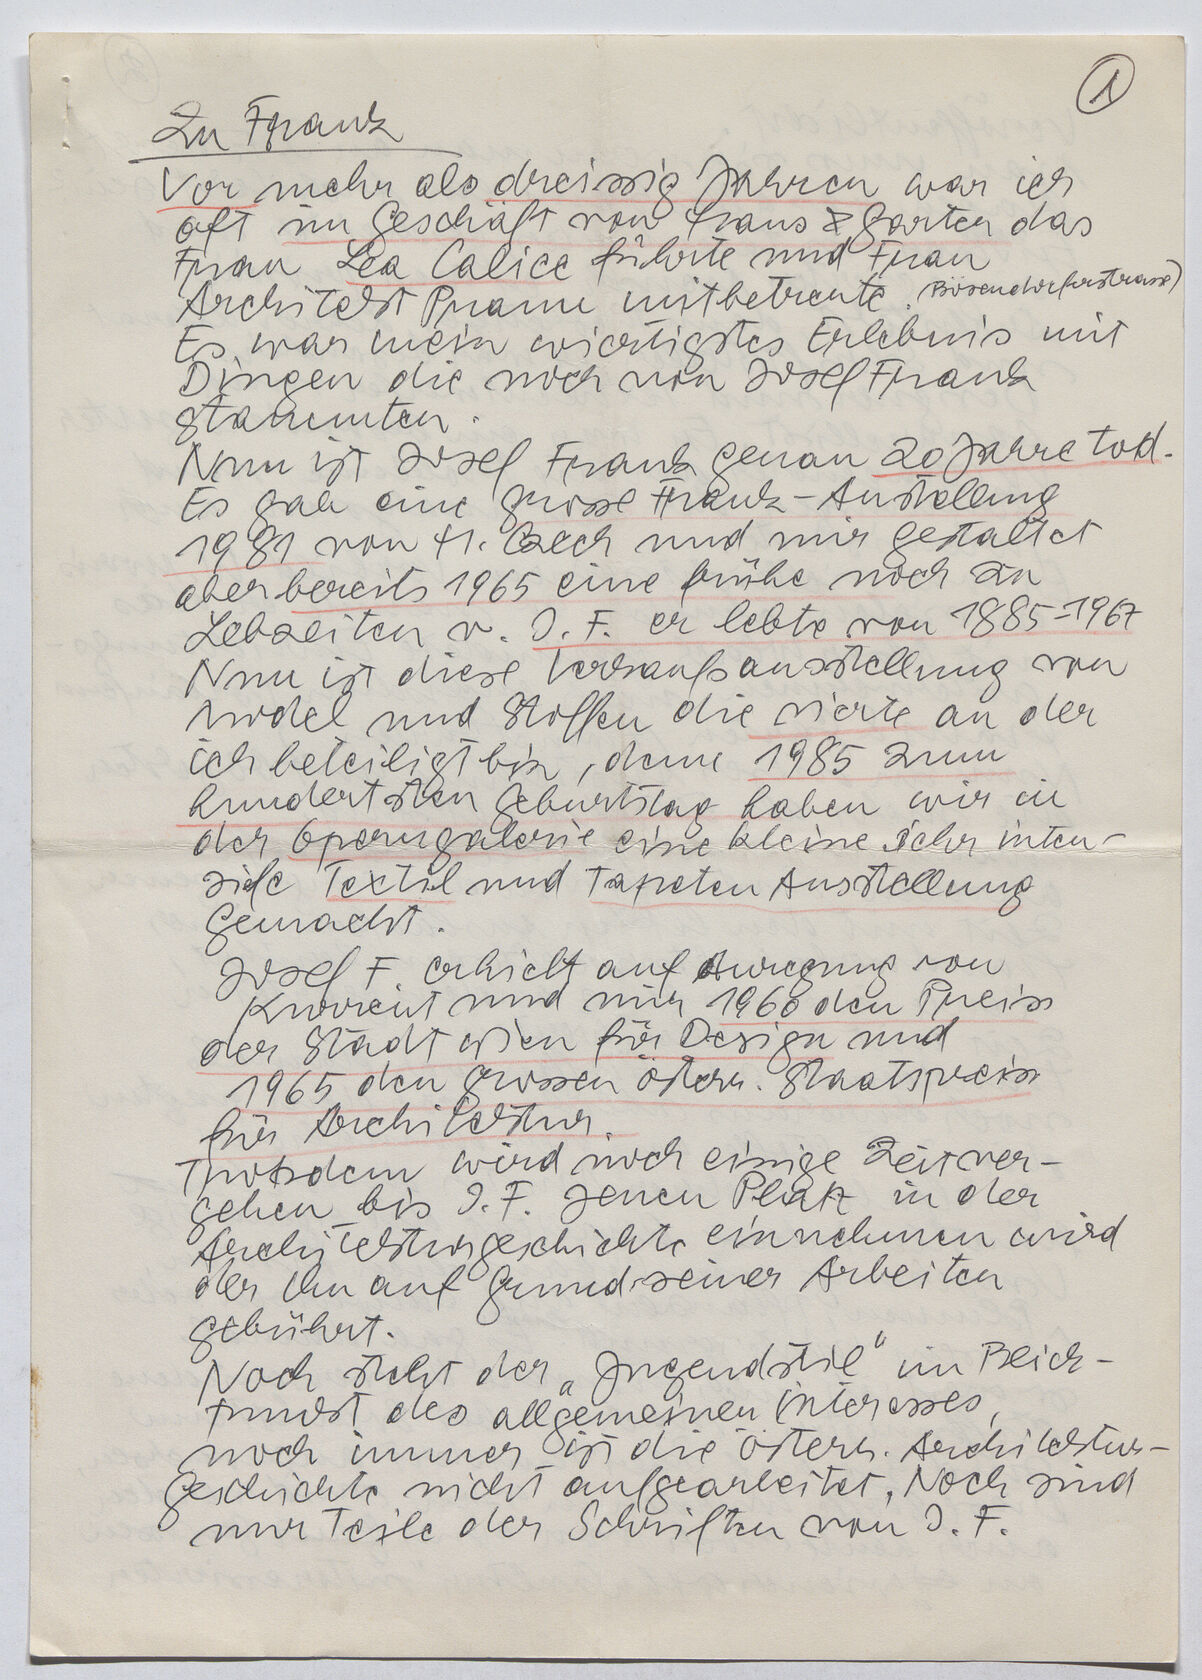 ①
Zu Frank
Vor mehr als dreissig Jahren war ich
oft im Geschäft von Haus & Garten das
Frau Lea Calice führte und Frau
Architekt Prami mitbetreute. (Bösendorferstrasse)
Es war mein wichtigstes Erlebnis mit
Dingen die noch von Josef Frank
stammten.
Nun ist Josef Frank genau 20 Jahre tod.
Es gab eine grosse Frank-Austellung
1981 von H. Czech und mir gestaltet
aber bereits 1965 eine frühe noch zu
Lebzeiten v. J. F. er lebte von 1885-1967
Nun ist diese Verkaufsausstellung von
Möbel und Stoffen die vierte an der
ich beteiligt bin, denn 1985 zum
hundertsten Geburtstag haben wir in
der Operngalerie eine kleine sehr inten-
sive Textil und Tapeten Ausstellung
gemacht.
Josef F. erhielt auf Anregung von
Kurrent und mir 1960 den Preis
der Stadt Wien für Design und
1965 den grossen österr. Staatspreis
für Architektur.
Trotzdem wird noch einige Zeit ver-
gehen bis J. F. jenen Platz in der
Architekturgeschichte einnehmen wird
der ihn auf Grund seiner Arbeiten
gebührt.
Noch steht der „Jugendstil" im Blick-
punkt des allgemeinen Interesses,
noch immer ist die österr. Architektur-
geschichte nicht aufgearbeitet, Noch sind
nur Teile der Schriften von J. F.